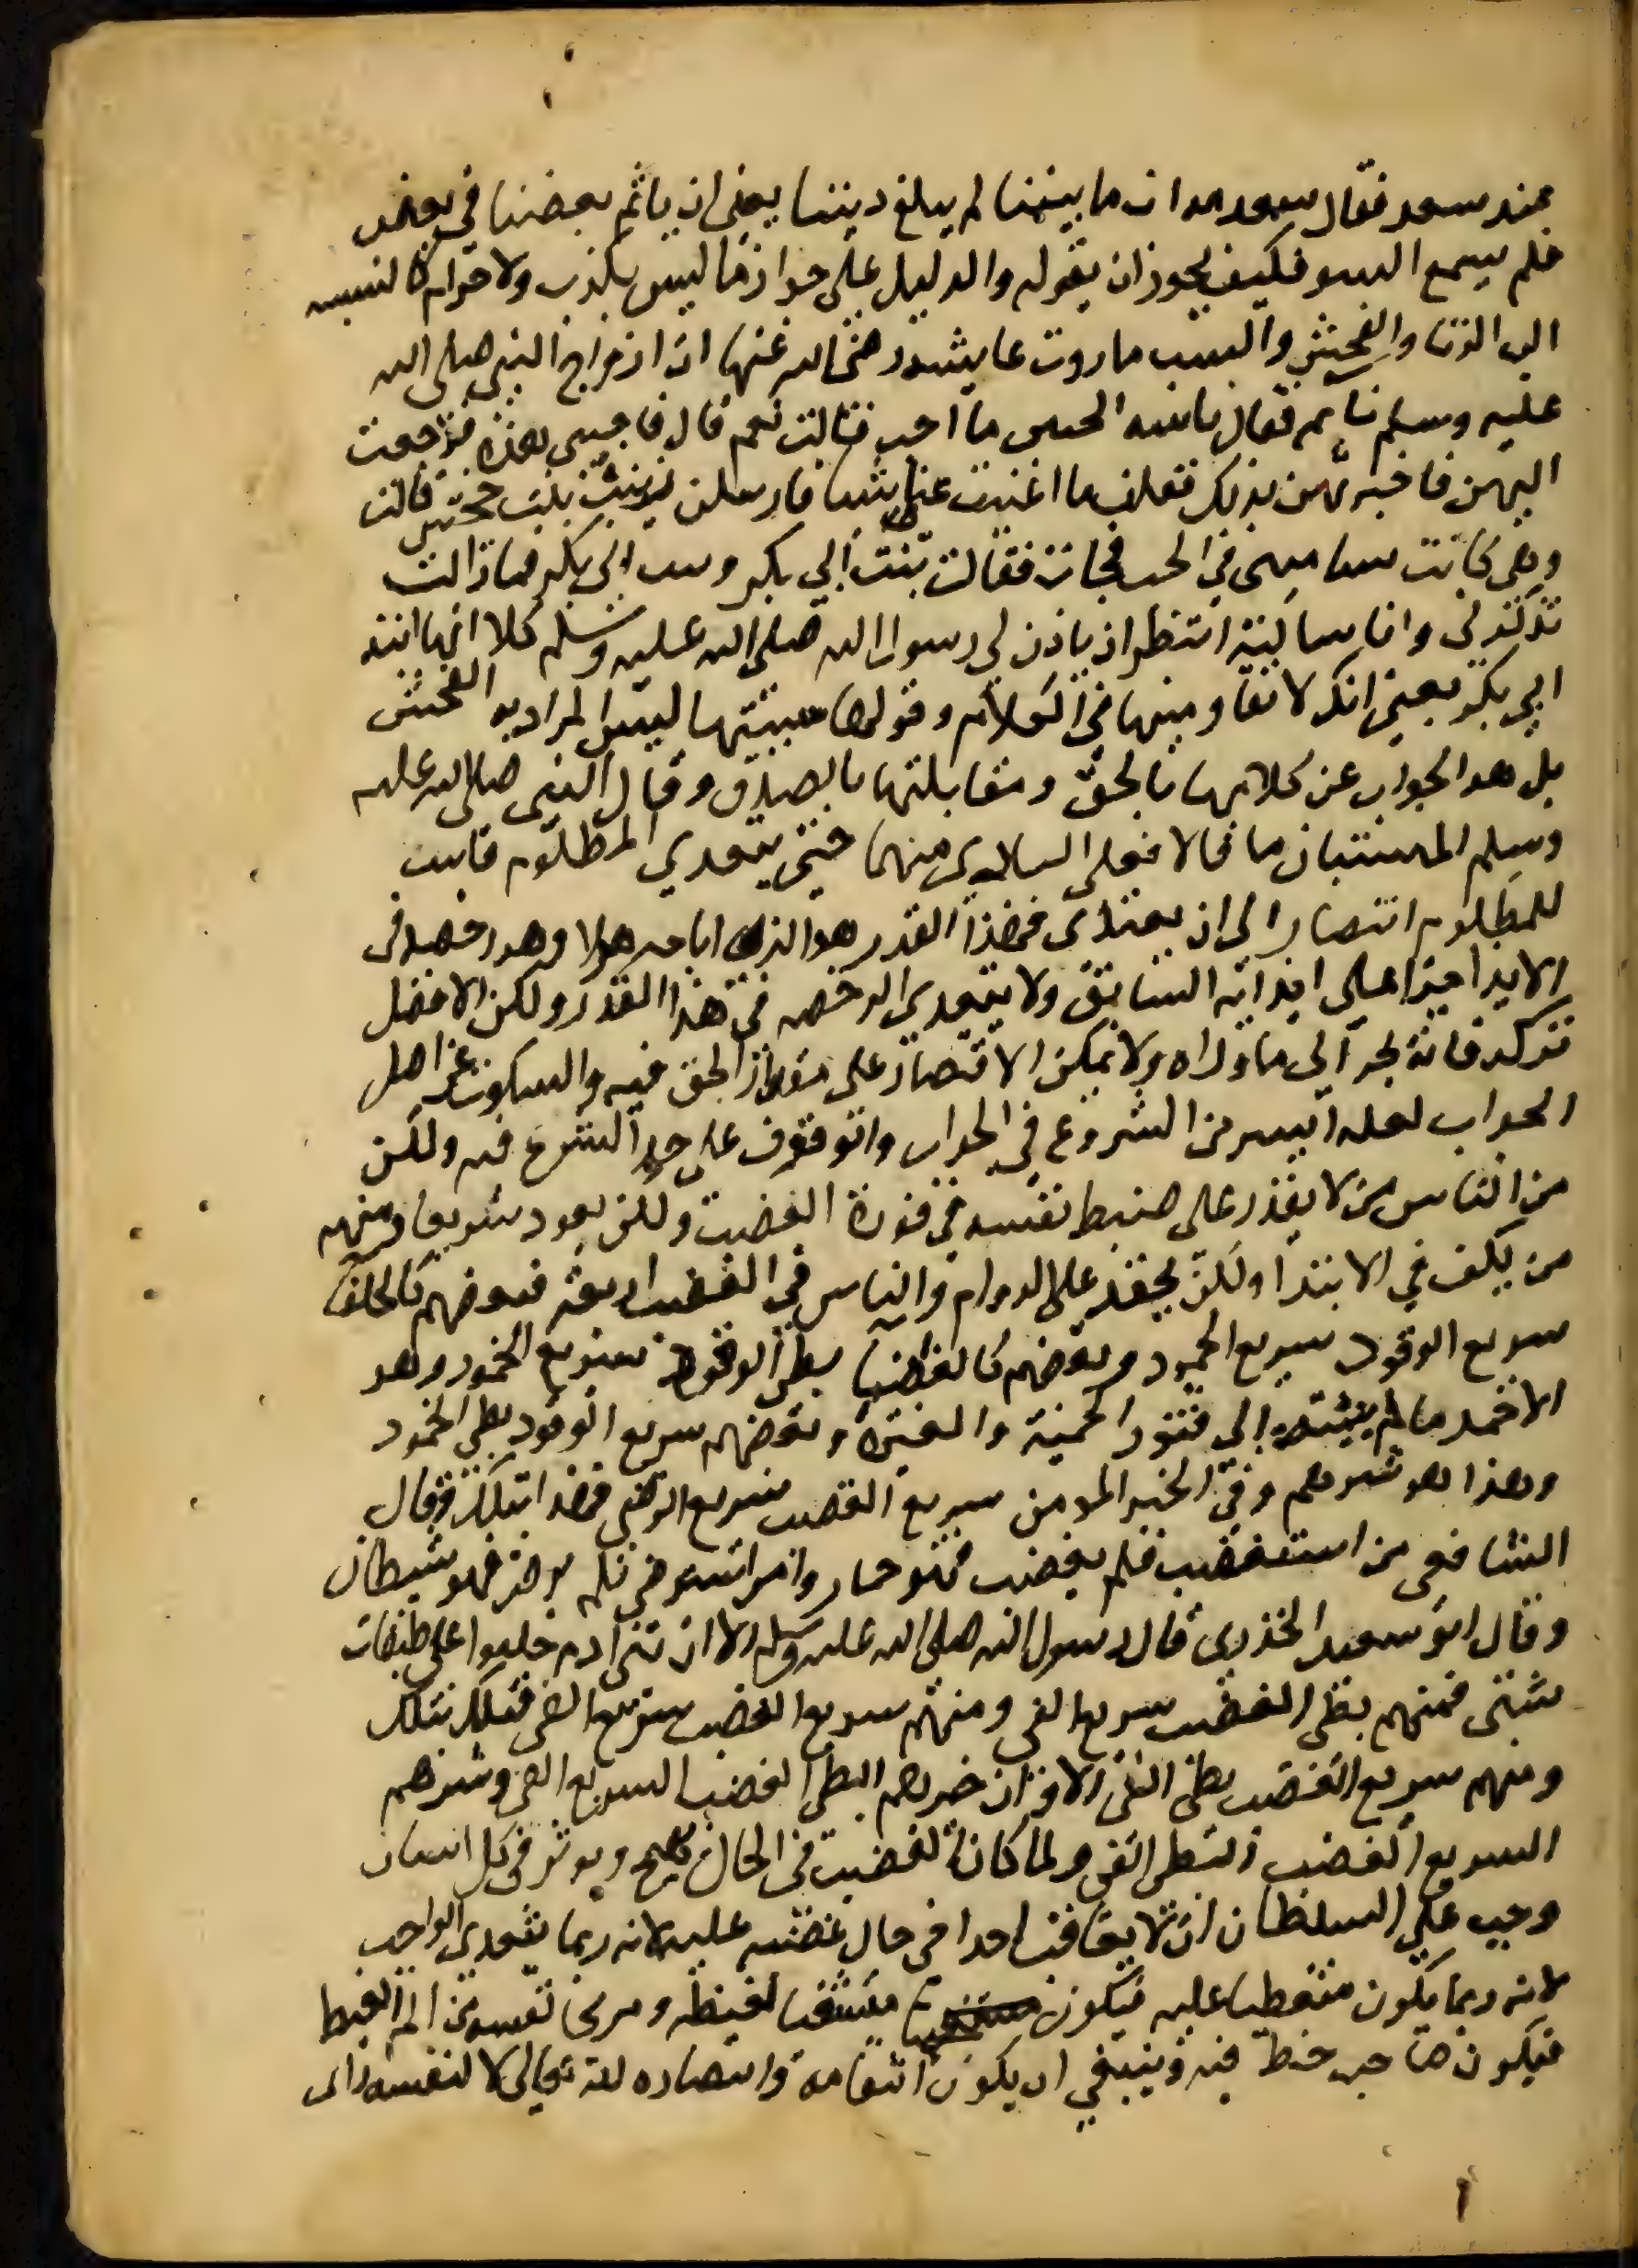 عند سعد فقال سعد مه ان ما بيننا لم يبلغ ديننا يعني ان ياثم بعضنا في بعض
فلم يسمع السو فكيف يجوز ان يقوله والدليل على جواز ما ليس بكذب ولا حرام كالنسبه
الى الزنا والفحش والسب ما روت عايشه رضي الله عنها ان ازواج النبي صلى الله
عليه وسلم فقال يا بنيه اتحبين ما احب فقالت نعم قال فاحبي هذه فرجعت
اليهن فاخبرتهن بذلك فقلن ما اغنيت عنا شيا فارسلن زينب بنت جحش قالت
وهي كانت تساميني في الحب فجات فقالت بنت ابي بكر وبنت ابي بكر فما زالت
تذكرني وانا ساكتة انتظر ان ياذن لي رسول الله صلى الله عليه وسلم كلا انها ابنة
ابي بكر يعني انك لا تقاومينها في الكلام وقولها سببتها ليس المراد به الفحش
بل هو الجواب عن كلامها بالحق ومقابلتها بالصدق وقال النبي صلى الله عليه
وسلم المستبان ما قالا فعلى البادي منهما حتى يتعدي المظلوم فاثبت
للمظلوم انتصارا الى ان يعتدى فهذا القدر هو الذي اباحه هولا وهو رخصه في
الايذا جزا على ايذائه السابق ولا يتعدى الرخصه في هذا القدر ولكن الافضل
تركه فانه يجر الى ما وراه ولا يمكن الاقتصار على مقدار الحق فيه والسكوت عن اصل
الجواب لعله ايسر من الشروع في الجواب والوقوف على حد الشرع فيه ولكن
من الناس من لا يقدر على ضبط نفسه في فورة الغضب ولكن يعود سريعا ومنهم
من يكف في الابتدا ولكن يحقد على الدوام والناس في الغضب اربعة فبعضهم كالحلفا
سريع الوقود سريع الخمود وبعضهم كالغضا بطي الوقود سريع الخمود وهو
الاحمد ما لم ينته الى فتور الحمية والغيرة وبعضهم سريع الوقود بطي الخمود
وهذا هو شرهم وفي الخبر المومن سريع الغضب سريع الرضى فهذه بتلك وقال
الشافعي من استغضب فلم يغضب فهو حمار ومن استرضي فلم يرض فهو شيطان
وقال ابو سعيد الخدري قال رسول الله صلى الله عليه وسلم الا ان بني ادم خلقوا على طبقات
شتى فمنهم بطي الغضب سريع الفي ومنهم سريع الغضب سريع الفي فتلك بتلك
ومنهم سريع الغضب بطي الفي الا وان خيرهم البطي الغضب السريع الفي وشرهم
السريع الغضب البطي الفي ولما كان الغضب في الحال يهيج ويوثر في كل انسان
وجب على السلطان ان لا يعاقب احدا في حال غضبه عليه لانه ربما يتعدى الواجب
لانه ربما يكون متغيظا عليه فيكون متشفيا لغيظه ومريحا نفسه من الم الغيظ
فيكون صاحب حظ فيه وينبغي ان يكون انتقامه وانتصاره لله تعالى لا لنفسه راى